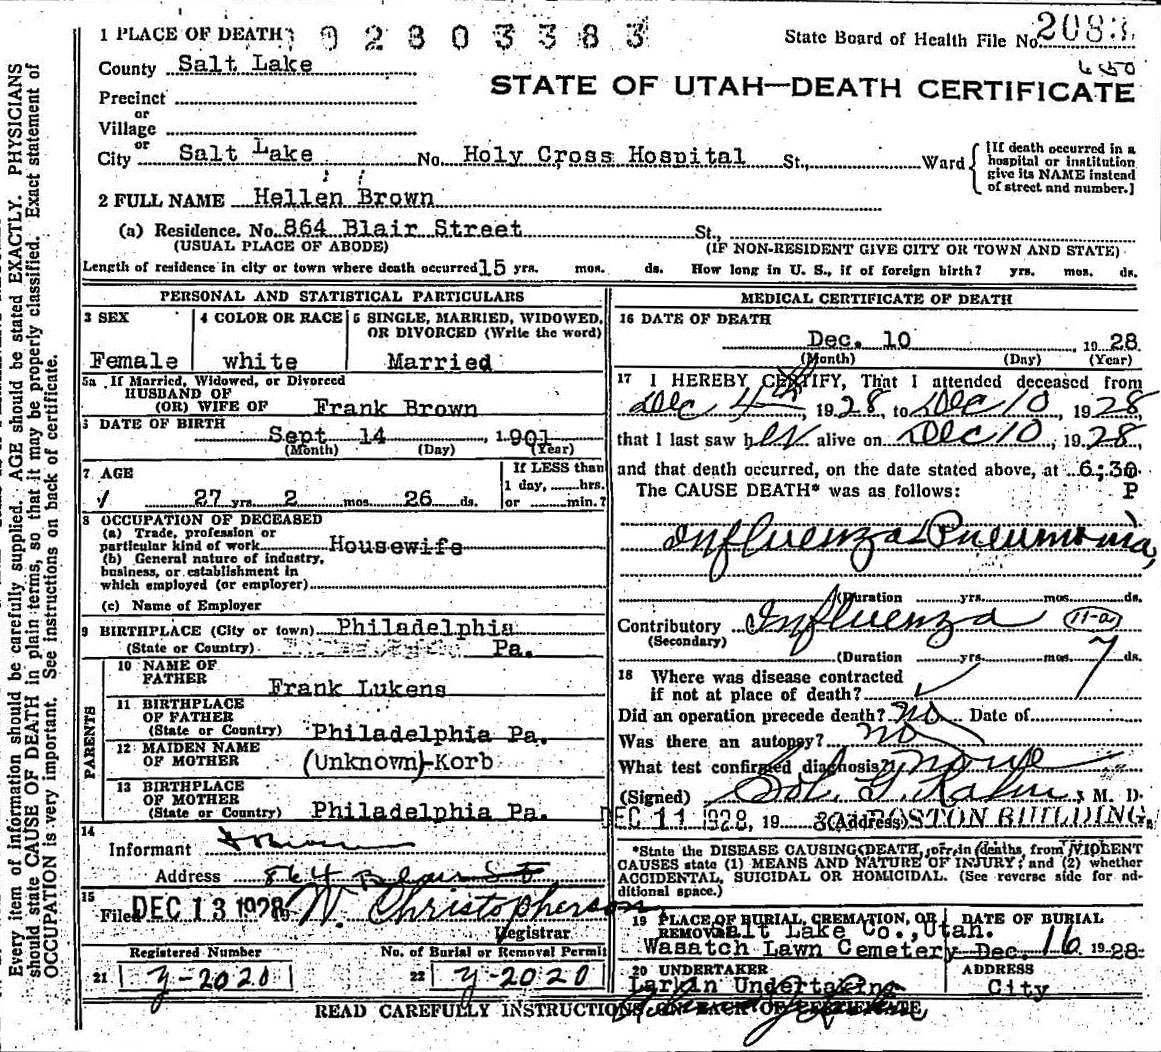 1 PLACE OF DEATH
9 2 8 0 3 3 8 3
State Board of Health File No. 2083
County Salt Lake
STATE OF UTAH—DEATH CERTIFICATE
Precinct
or
Village
or
City Salt Lake No. Holy Cross Hospital St., Ward
[If death occurred in a
hospital or institution
give its NAME instead
of street and number.]
2 FULL NAME Hellen Brown
(a) Residence. No. 864 Blair Street St.,
(USUAL PLACE OF ABODE) (IF NON-RESIDENT GIVE CITY OR TOWN AND STATE)
Length of residence in city or town where death occurred 15 yrs. mos. ds. How long in U. S., if of foreign birth? yrs. mos. ds.
PERSONAL AND STATISTICAL PARTICULARS
3 SEX
Female
4 COLOR OR RACE
white
5 SINGLE, MARRIED, WIDOWED,
OR DIVORCED (Write the word)
Married
5a If Married, Widowed, or Divorced
HUSBAND OF
(OR) WIFE OF Frank Brown
6 DATE OF BIRTH
Sept 14, 1901
(Month) (Day) (Year)
7 AGE
27 yrs. 2 mos. 26 ds.
If LESS than
1 day, hrs.
or min.?
8 OCCUPATION OF DECEASED
(a) Trade, profession or
particular kind of work Housewife
(b) General nature of industry,
business, or establishment in
which employed (or employer)
(c) Name of Employer
9 BIRTHPLACE (City or town) Philadelphia
(State or Country) Pa.
PARENTS
10 NAME OF
FATHER
Frank Lukens
11 BIRTHPLACE
OF FATHER
(State or Country) Philadelphia Pa.
12 MAIDEN NAME
OF MOTHER (Unknown)-Korb
13 BIRTHPLACE
OF MOTHER
(State or Country) Philadelphia Pa.
14
Informant
Address 864 Blair St
15
Filed DEC 13 1928 W. Christopherson
Registrar
Registered Number No. of Burial or Removal Permit
21 y-2020 22 y-2020
MEDICAL CERTIFICATE OF DEATH
16 DATE OF DEATH
Dec. 10, 1928
(Month) (Day) (Year)
17 I HEREBY CERTIFY, That I attended deceased from
Dec 4th, 1928, to Dec 10, 1928
that I last saw her alive on Dec 10, 1928,
and that death occurred, on the date stated above, at 6:30
P
The CAUSE DEATH* was as follows:
Influenzal Pneumonia,
(Duration yrs. mos. ds.
Contributory Influenza 11-a
(Secondary)
(Duration yrs. mos. 7 ds.
18 Where was disease contracted
if not at place of death?
Did an operation precede death? no Date of
Was there an autopsy? no
What test confirmed diagnosis? none
(Signed) Sol. G. Kahn, M. D.
DEC 11 1928, 19 (Address) BOSTON BUILDING
*State the DISEASE CAUSING DEATH, or in deaths, from VIOLENT
CAUSES state (1) MEANS AND NATURE OF INJURY; and (2) whether
ACCIDENTAL, SUICIDAL OR HOMICIDAL. (See reverse side for ad-
ditional space.)
19 PLACE OF BURIAL, CREMATION, OR
REMOVAL Salt Lake Co., Utah.
Wasatch Lawn Cemetery
DATE OF BURIAL
Dec. 16 1928
20 UNDERTAKER
Larkin Undertaking
ADDRESS
City
READ CAREFULLY INSTRUCTIONS ON BACK OF CERTIFICATE
Every item of information should be carefully supplied. AGE should be stated EXACTLY. PHYSICIANS
should state CAUSE OF DEATH in plain terms, so that it may be properly classified. Exact statement of
OCCUPATION is very important. See instructions on back of certificate.